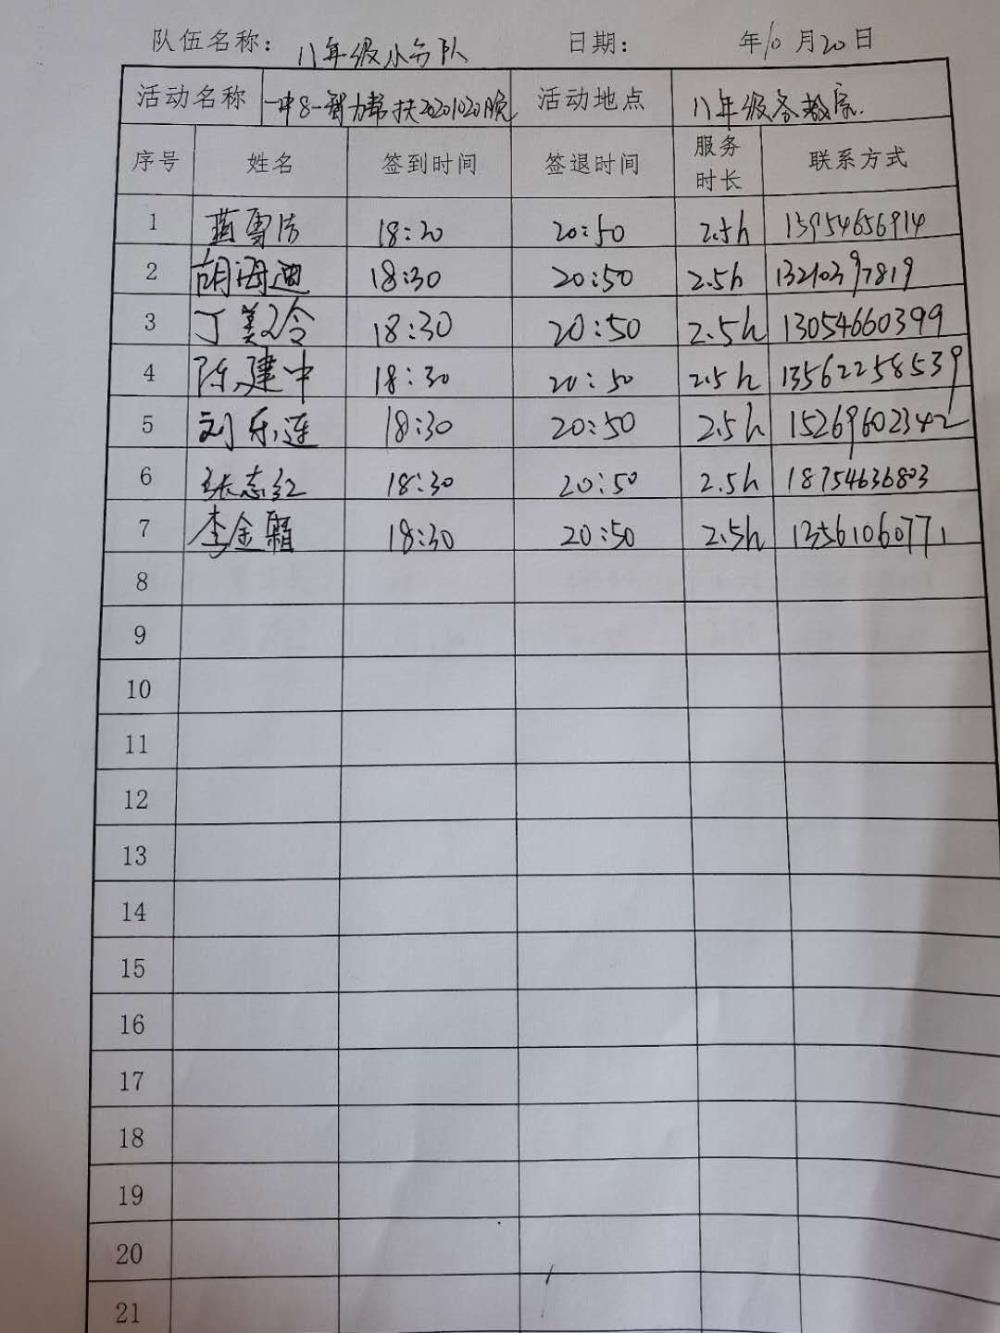 队伍名称: 八年级小分队 日期: 年10月20日
活动名称 一中8一智力帮扶20201020晚 活动地点 八年级各教室.
序号 姓名 签到时间 签退时间 服务时长 联系方式
1 18:20 20:50 2.5h 15954656914
2 胡海迪 18:30 20:50 2.5h 13210397819
3 丁美玲 18:30 20:50 2.5h 13054660399
4 陈建中 18:30 20:50 2.5h 13562258539
5 刘乐莲 18:30 20:50 2.5h 15269602342
6 张志红 18:30 20:50 2.5h 18754636803
7 李金霜 18:30 20:50 2.5h 13561060771
8
9
10
11
12
13
14
15
16
17
18
19
20
21